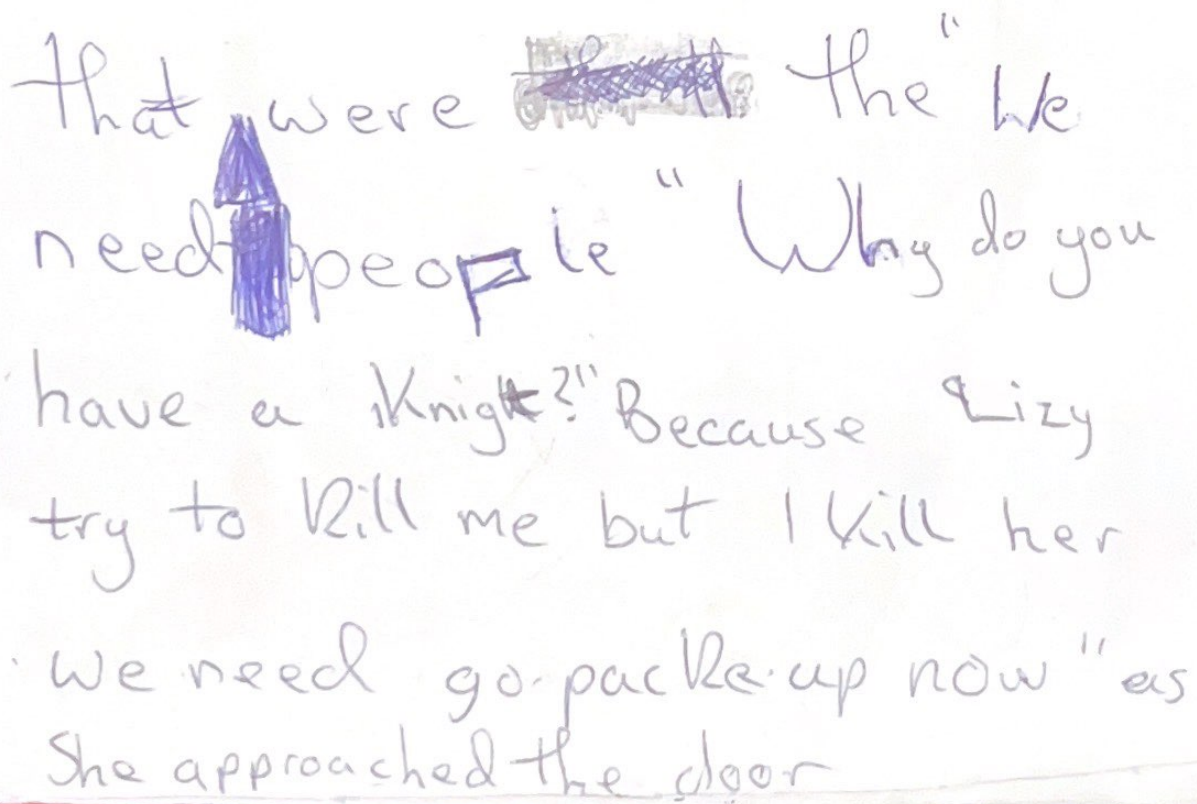 that were the " We
need people " Why do you
have a Knigt?" Because Lizy
try to kill me but I kill her
we need go packe up now " as
She approached the door